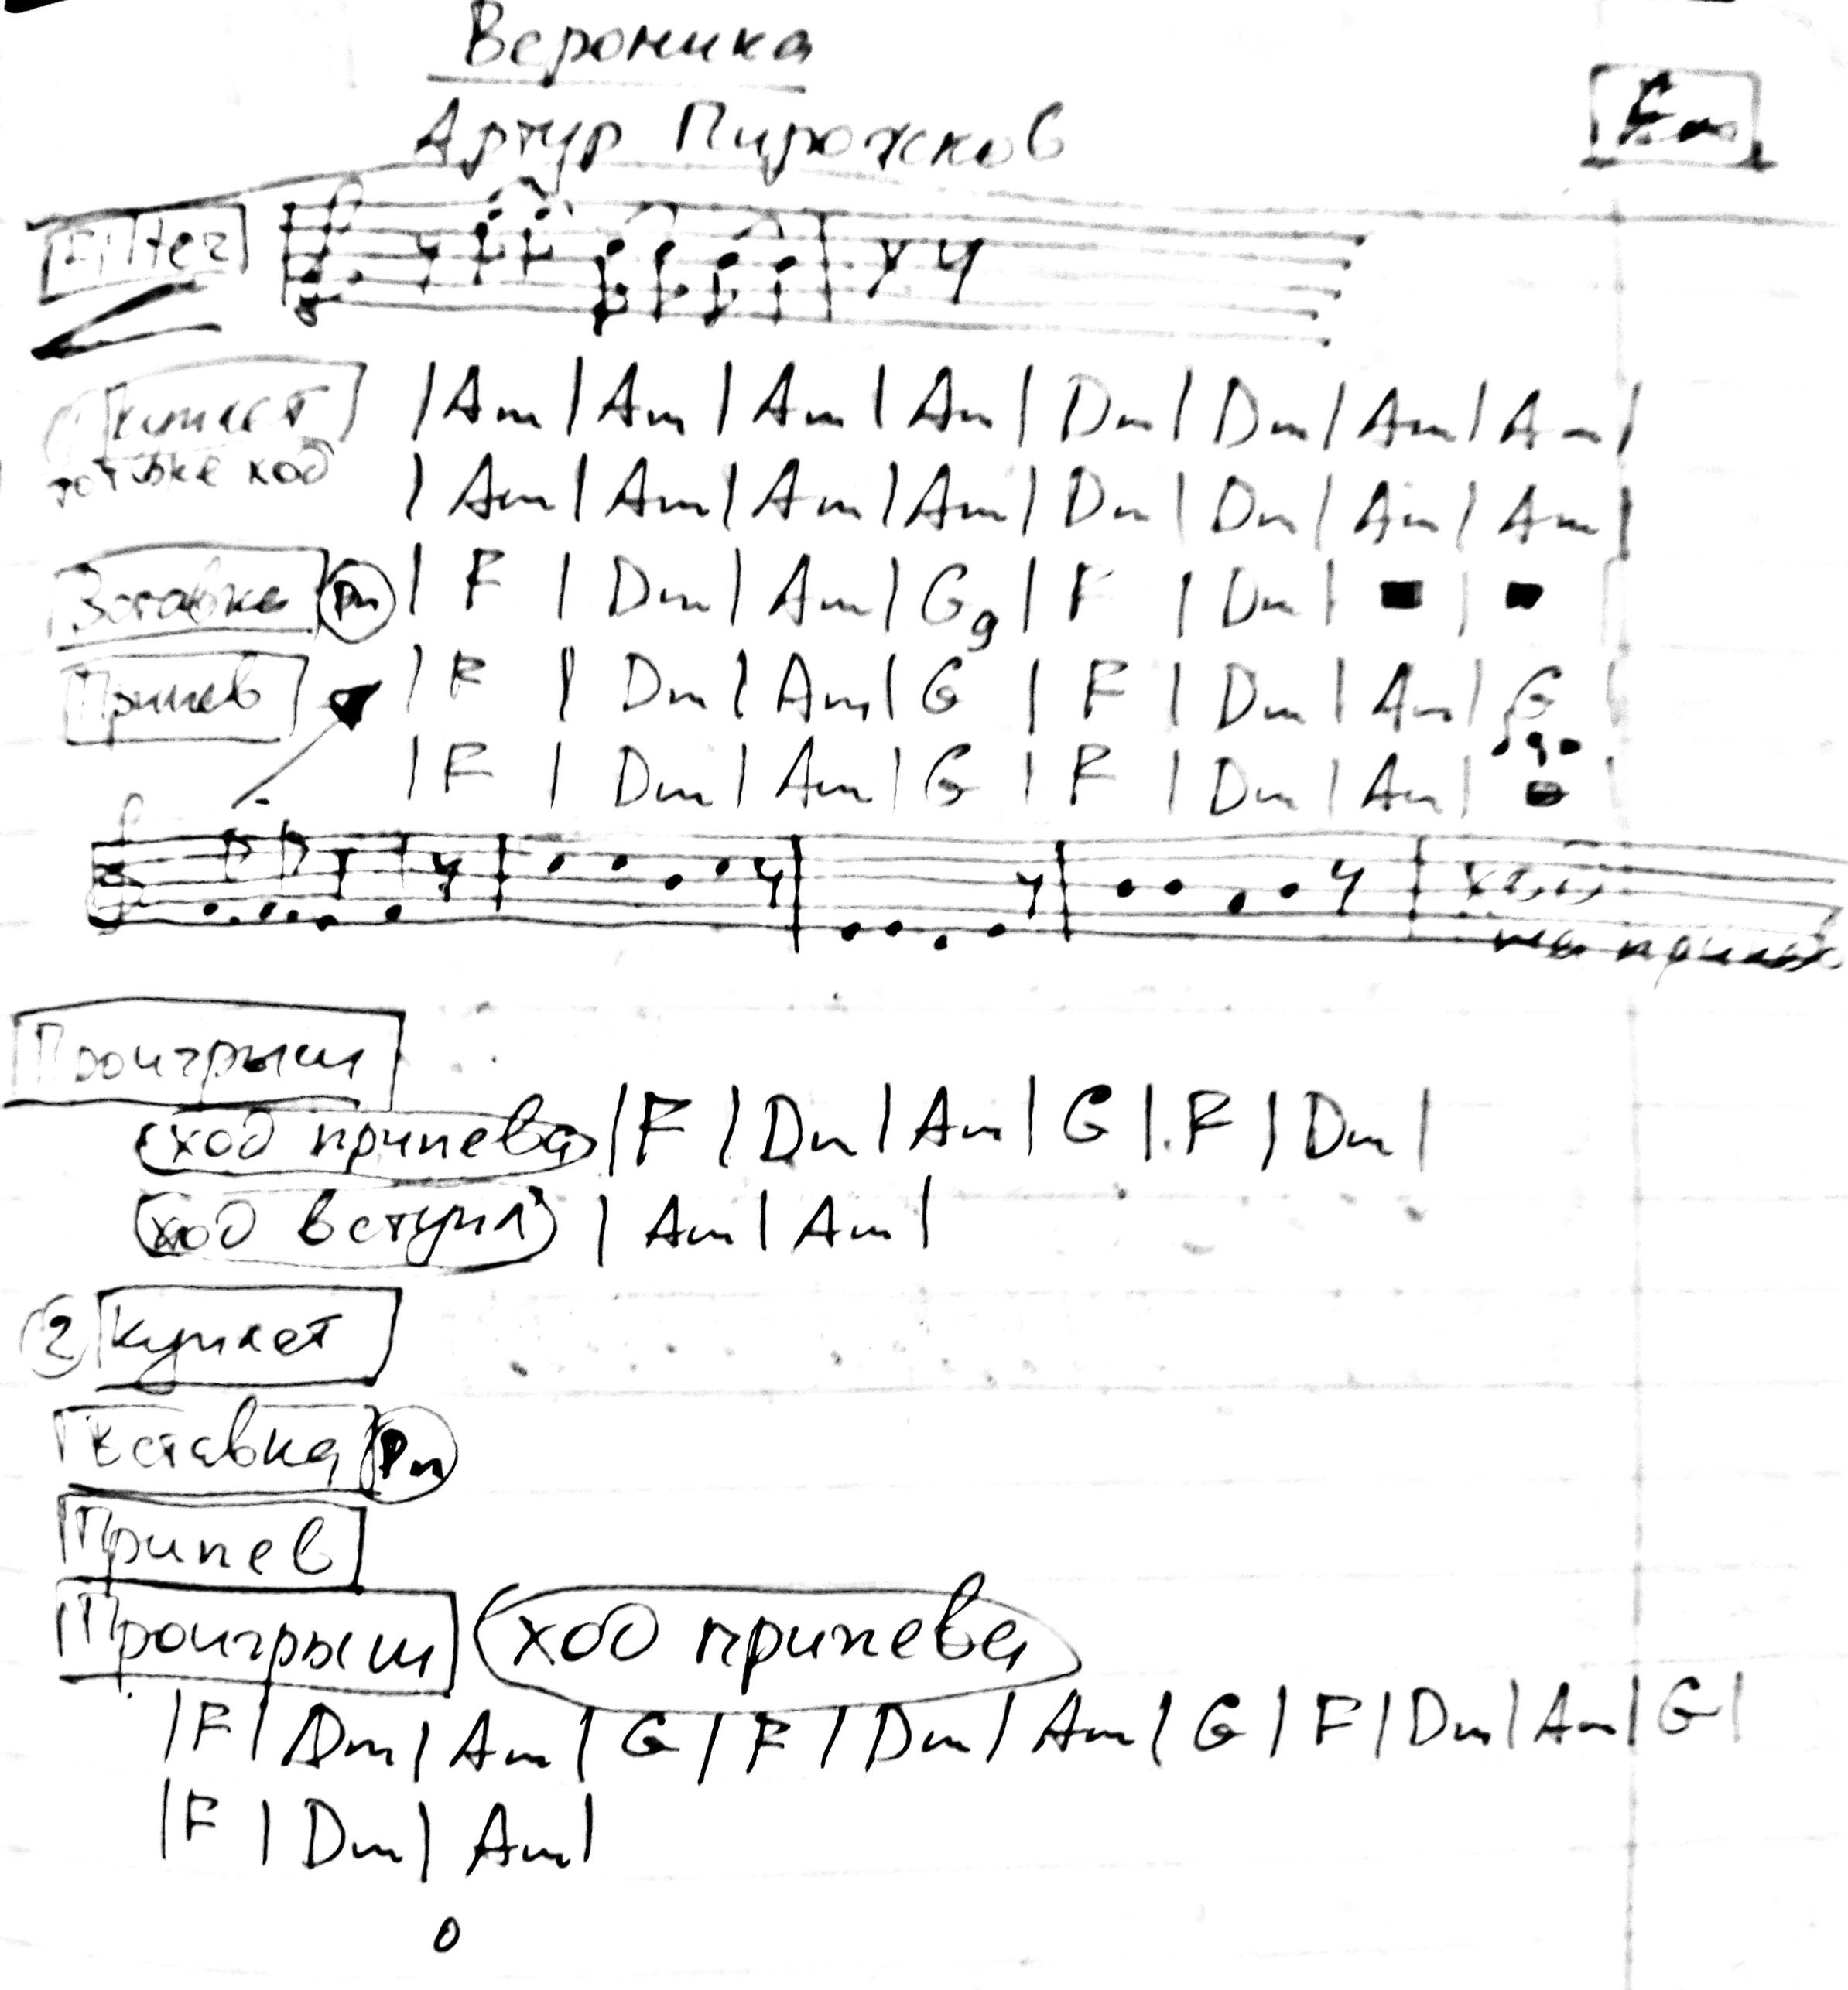 Вероника
Артур Пирожков
Em
Filter
куплет | Am | Am | Am | Am | Dm | Dm | Am | Am |
тот же ход | Am | Am | Am | Am | Dm | Dm | Am | Am |
Заставка Pn | F | Dm | Am | G9 | F | Dm | |
Припев | F | Dm | Am | G | F | Dm | Am | G |
| F | Dm | Am | G | F | Dm | Am |
Проигрыш
ход припева | F | Dm | Am | G | F | Dm |
ход вступл | Am | Am |
2 куплет
Вставка Pn
Припев
Проигрыш ход припева
| F | Dm | Am | G | F | Dm | Am | G | F | Dm | Am | G |
| F | Dm | Am |